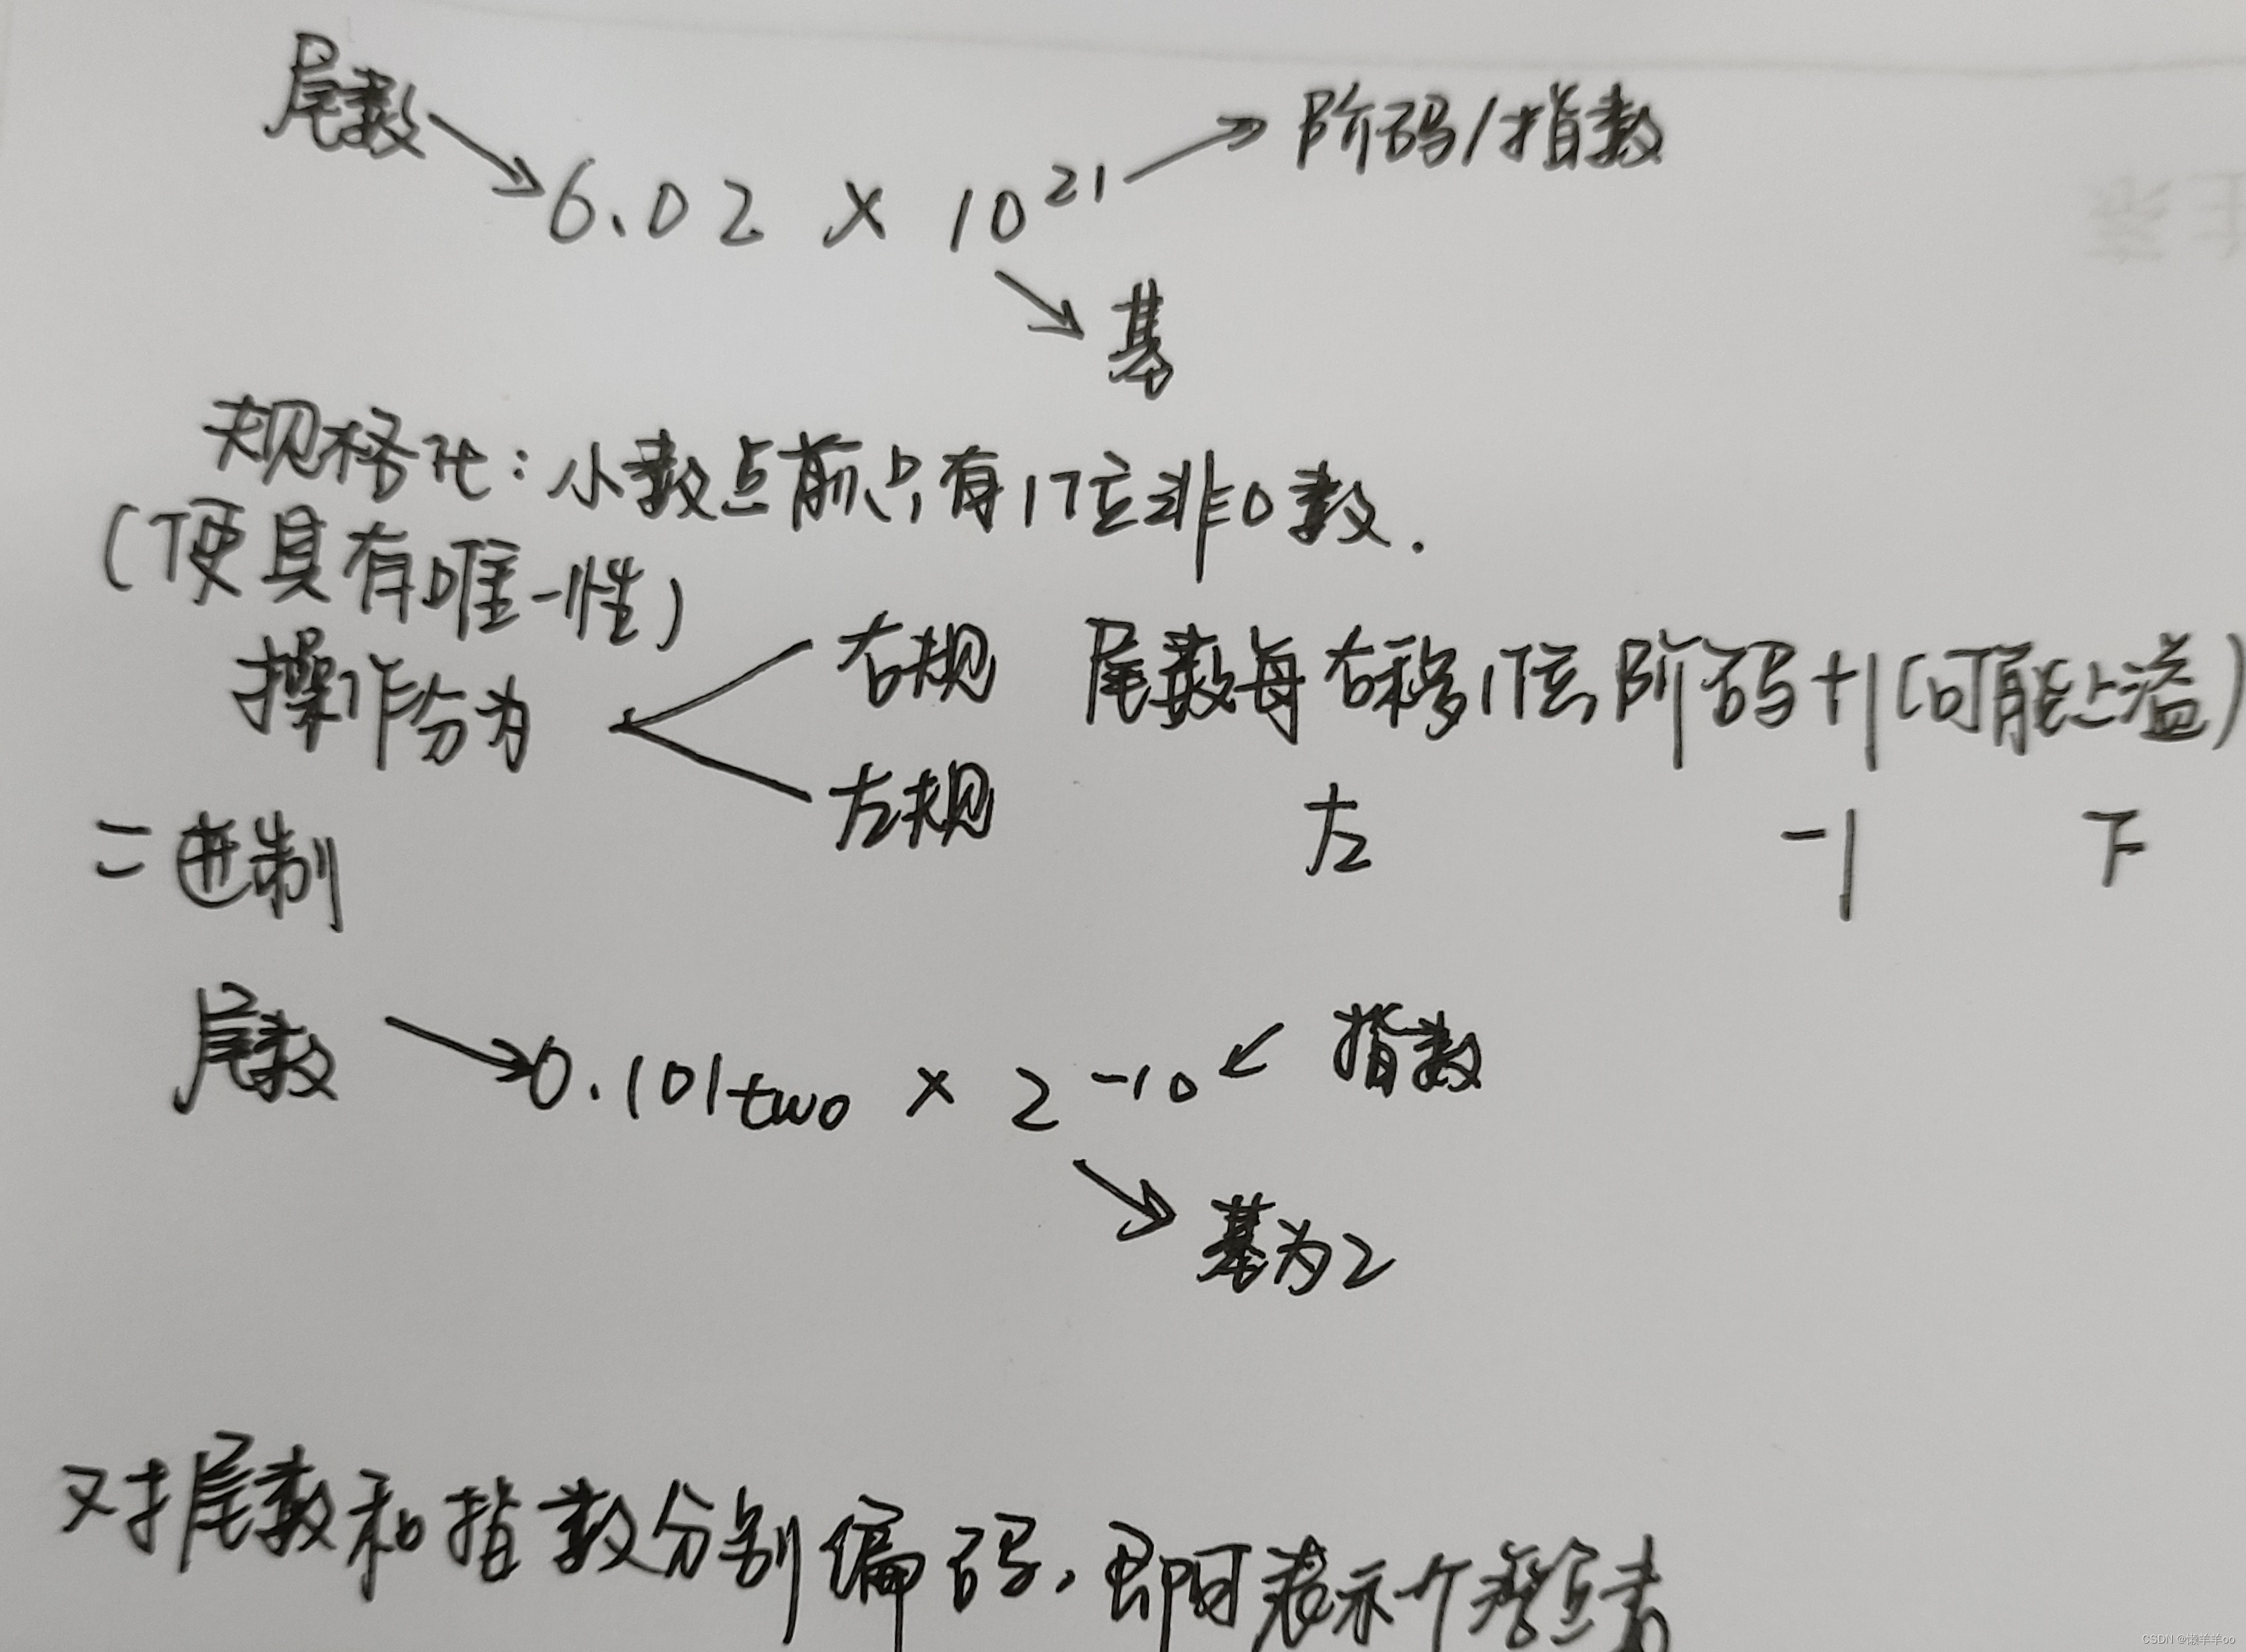 尾数 阶码/指数
6.02 × 10²¹
基
规格化:小数点前只有1位非0数.
(便具有唯一性)
操作分为 右规 尾数每右移1位,阶码+1(可能上溢)
左规 左 -1 下
二进制
尾数 0.101two × 2⁻¹⁰ 指数
基为2
对尾数和指数分别编码,即可表示一个
CSDN @懒羊羊oo